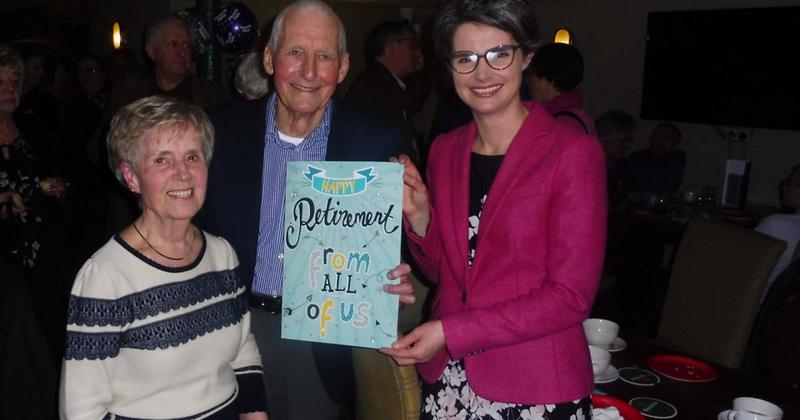 HAPPY
Retirement
from
ALL
of us